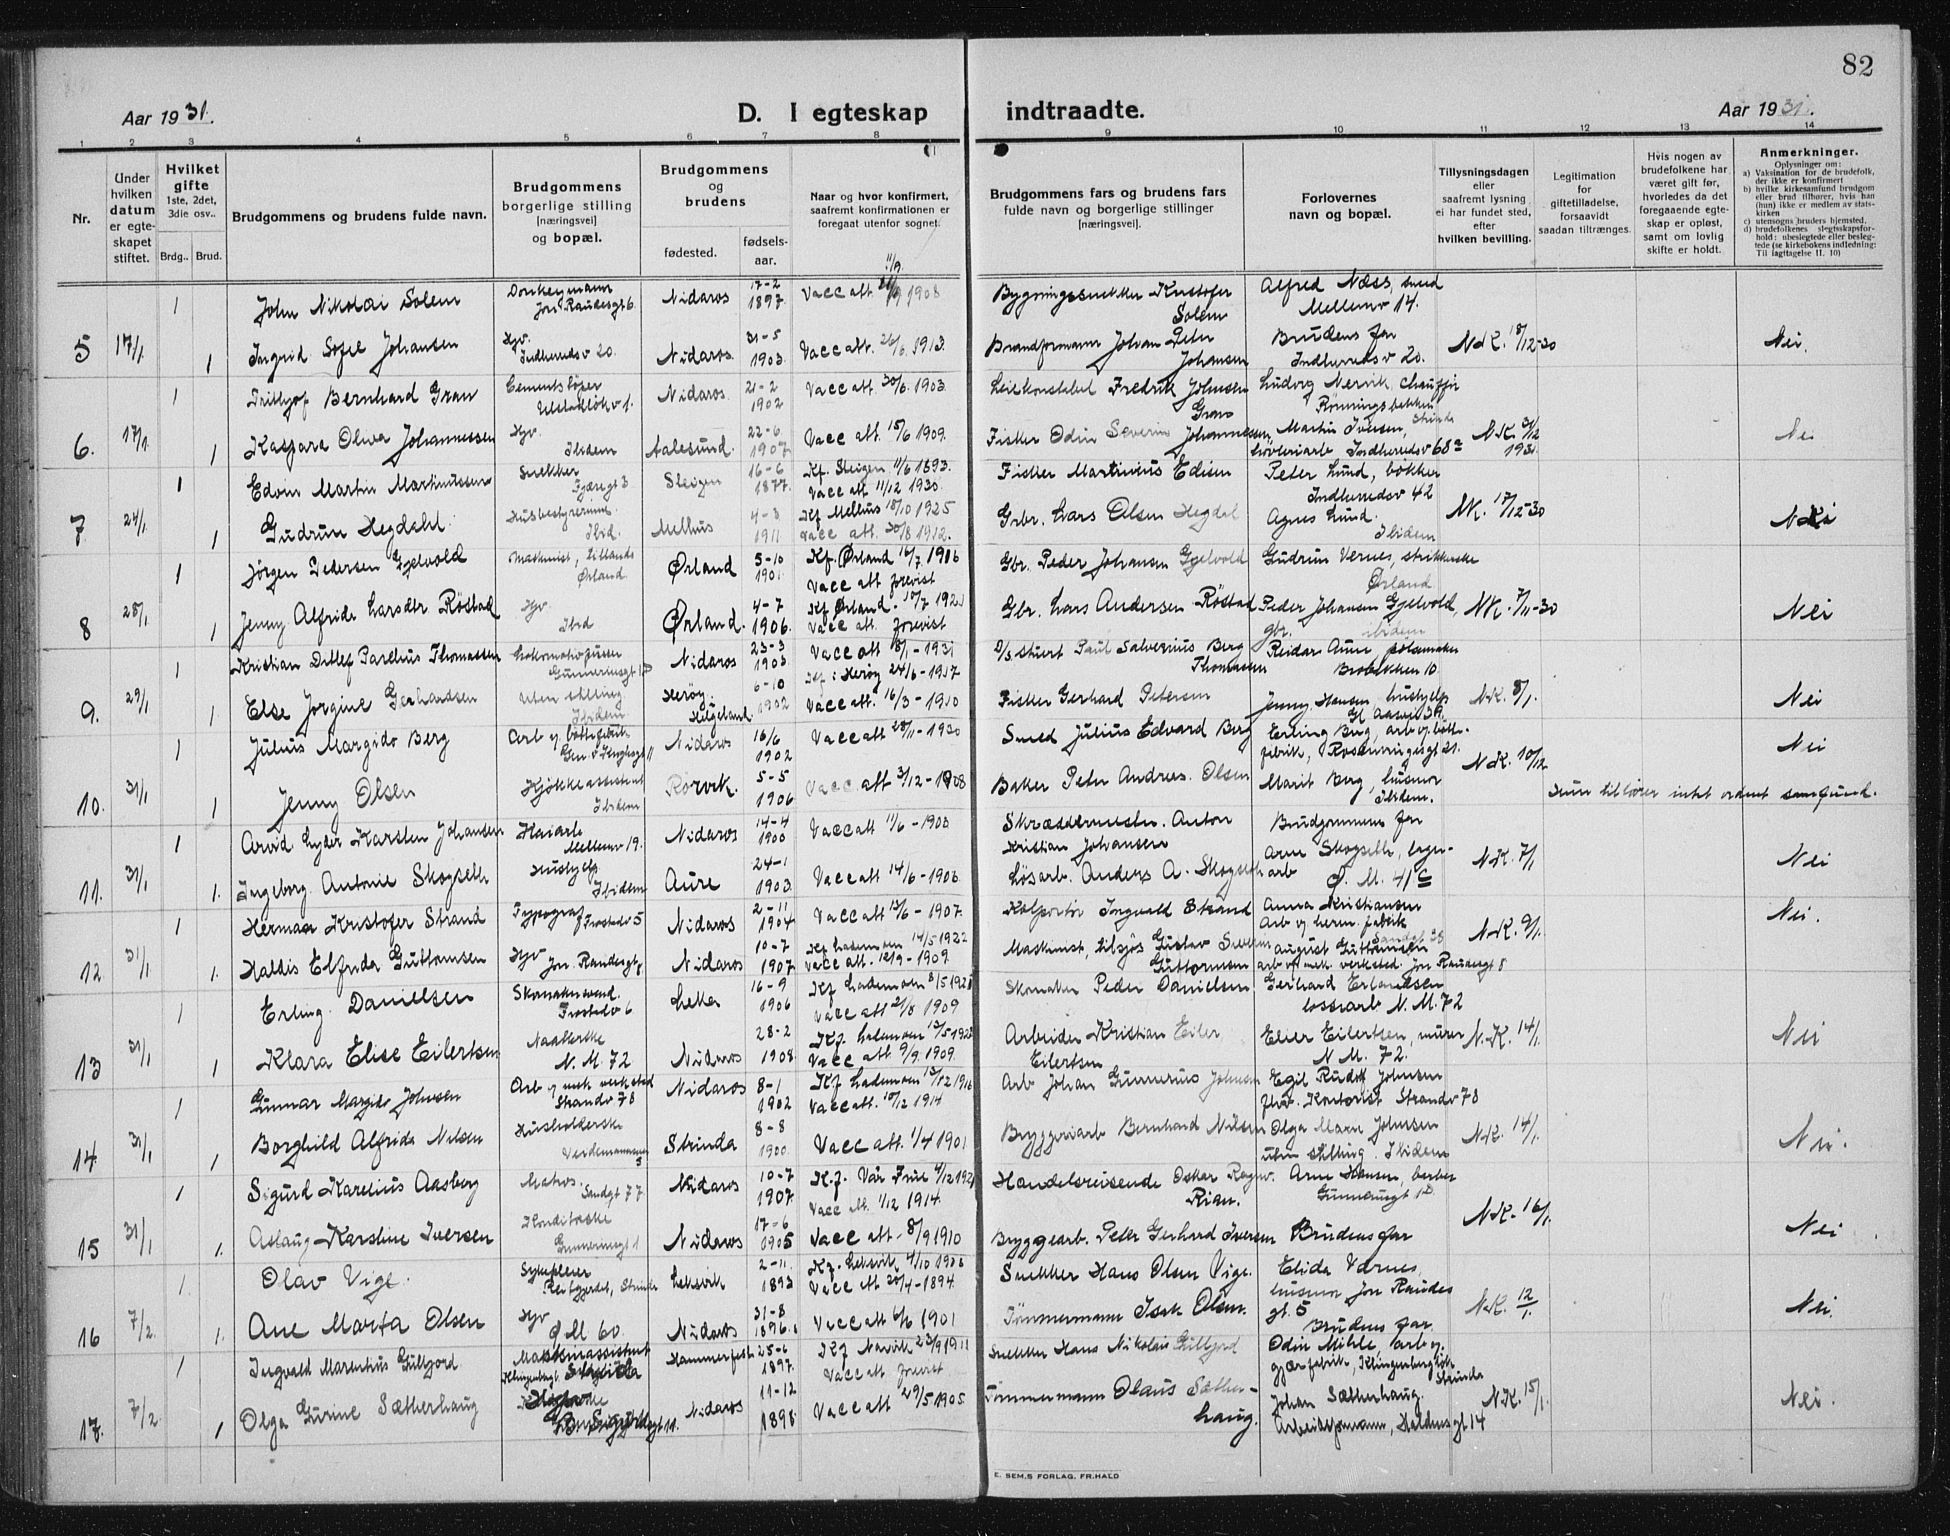 82
Aar 1931.
D. I egteskap indtraadte.
Aar 1931.
1 2 3 4 5 6 7 8 9 10 11 12 13 14
Nr.
Under hvilken datum er egteskapet stiftet.
Hvilket gifte 1ste, 2det, 3die osv..
Brdg..
Brud.
Brudgommens og brudens fulde navn.
Brudgommens borgerlige stilling [næringsvei] og bopæl.
Brudgommens og brudens
fødested.
fødsels-aar.
Naar og hvor konfirmert, saafremt konfirmationen er foregaat utenfor sognet.
Brudgommens fars og brudens fars fulde navn og borgerlige stillinger [næringsvei].
Forlovernes navn og bopæl.
Tillysningsdagen eller saafremt lysning ei har fundet sted, efter hvilken bevilling.
Legitimation for giftetilladelse, forsaavidt saadan tiltrænges.
Hvis nogen av brudefolkene har været gift før, hvorledes da det foregaaende egteskap er opløst, samt om lovlig skifte er holdt.
Anmerkninger.
Oplysninger om:
a) Vaksination for de brudefolk, der ikke er konfirmert
b) hvilke kirkesamfund brudgom eller brud tilhører, hvis han (hun) ikke er medlem av statskirken
c) utensogns bruders hjemsted.
d) brudefolkenes slegtsskapsforhold: nbeslegtede eller beslegtede (se kirkebokens indledning: Til Iagttagelse II. 10)
1 John Nikolai Solem Donkeymann Jon Raudesgt 6. Nidaros 17-2 1897. Vacc att. 11/9 1908 Bygningssnekker Kristofer Solem Alfred Næss, smed Mellemv 14.
5 17/1 1 Ingrid Sofie Johansen Hjv. Indherredsv 20. Nidaros. 31-5 1903. Vacc att. 26/6 1913. Brandformann Johan Peter Johansen Brudens far Indherredsv 20. N.K. 18/12-30 Nei.
1 Fritjof Bernhard Gran Cementstøper Nidaros. 21-2 1902 Vacc att 30/6 1903. Fredrik Johnsen Gran Ludvig Nervik, chauffør Rønningsbakken Strinda
6. 17/1 1 Kaspara Oliva Johannessen Hjv. Ibidem Aalesund. 22-6 1907. Vacc att. 15/6 1909. Fisker Odin Severin Johannessen Martin Iversen, Indherredsv 68a N.K. 31/12 Nei
1 Edvin Martin Martinussen Snekker Steigen 16-6 1877. Kf. Steigen 11/6 1893. Vacc att 11/12 1930 Fisker Martinius Edisen Peter Lund, bøkker Indherredsv 42
7 24/1 1 Gudrun Hegdahl Husbestyrerinne Ibid. Melhus 4-3 1911 Kf Melhus 18/10 1925 Vacc att. 30/8 1912. Grbr. Lars Olsen Hegdal Agnes Lund. Ibidem NK. 17/12-30 Nei
1 Jørgen Pedersen Gjelvold Maskinist, Ørland Ørland 5-10 1901. Kf. Ørland 16/7 1916 Vacc att forevist Gbr. Peder Johansen Gjelvold Gudrun Vernes, Ørland
8 28/1 1 Jenny Alfride Larsdtr Røstad Hjv Ibid Ørland. 4-7 1906. Kf Ørland. Vacc att. forevist Gbr. Lars Andersen Røstad Peder Johansen Gjelvold, gbr. ibidem NK. 7/11-30 Nei
1 Kristian Ditlef Parelius Thomassen Nidaros 23-3 1903 Vacc att 8/1-1931 Paul Salvesius Berg Thomassen Reidar Aune, pølsemaker Brobakken 10
9. 29/1 1 Else Jorgine Gerhardsen Uten stilling. Ibidem Herøy. Helgeland. 6-10 1902 Kf. i Herøy 24/6-1917 Vacc att. 16/3-1910 Fisker Gerhard Petersen Jenny Hansen hushjelp N.K. 8/1. Nei
1 Julius Margido Berg Nidaros 16/6 1902 Vacc att 28/11-1930 Smed Julius Edvard Berg Erling Berg, Nei
10. 31/1 1 Jenny Olsen Kjøkkeassistent Ibidem Rørvik. 5-5 1906 Vacc att 3/12-1908 Baker Peter Andreas Olsen Marit Berg, husmor Ibidem. N.K. 10/12 Hun tilhører intet ordnet samfund.
1 Arvid Lyder Karsten Johansen Havarb Mellemv 19. Nidaros 14-4 1900 Vacc att 11/6-1900 Skræddermester. Anton Kristian Johansen Brudgommens far
11. 31/1 1. Ingeborg Antonie Skogseth Hushjelp Ibidem Aure 24-1 1903. Vacc att 14/6-1906 Løsarb. Anders A. Skogseth Arne Skogseth, Ø. M. 41c N.K. 7/1 Nei
1 Herman Kristofer Strand Typograf Frostadv 5 Nidaros 2-11 1904 Vacc att 13/6-1907. Kolportør Ingvald Strand Anna Kristiansen Nei.
12 31/1 1. Haldis Elfrida Guttormsen Hjv Jon Raudesgt 8 Nidaros 10-7 1907. Kf Lademoen 14/5 1922 Vacc att. 12/9-1909. Maskinist, tilsjøs Gustav Severin Guttormsen August Guttormsen arb v mek. verksted. Jon Raudesgt 8 N.K. 9/1.
1 Erling Danielsen Skomakersvend. Frostadv 6 Leka 16-9 1906 Kf Lademoen Vacc att 21/8 1909 Skomaker Peder Danielsen Gerhard Erlandsen N.M. 72
13 31/1 1 Klara Elise Eilertsen N.M. 72 Nidaros 28-2 1908. Kf. Lademoen Vacc att 9/9. 1909. Arbeider Kristian Eiler Eilertsen Eiler Eilertsen, murer N.M. 72. N.K. 14/1. Nei
1 Gunnar Margido Johnsen Arb v mek verksted Strandv 78 Nidaros 8-1 1902 Kf Lademoen Vacc att. 10/12 1914 Arb Johan Gunnerius Johnsen Egil Rudolf Johnsen Kontorist Strandv 78
14 31/1 1 Borghild Alfrida Nilsen Husholderske Strinda 8-8 1900 Vacc att. 1/4 1901 Bryggeriarb Bernhard Nilsen Olga Marie Johnsen uten stilling. Ibidem N.K. 14/1. Nei.
1 Sigurd Karelius Aasberg Matros. Sandgt 77 Nidaros 10-7 1907. Kf. Vår Frue Vacc att. 1/12 1914. Handelsreisende Oskar Ragnv. Rian. Arne Hansen, barber
15 31/1 1. Aslaug Karstine Iversen Nidaros 17-6 1905 Vacc att. 8/9 1910 Bryggearb. Peter Gerhard Iversen Brudens far N.K. 16/1. Nei
1. Olav Vige. Sykepleier Strinda Leksvik 2-11 1893 Kf. Leksvik 4/10 1908 Vacc att 20/4-1894 Snekker Hans Olsen Vige. Elida Værnes, husmor Jon Raudes gt. 5
16 7/2. 1. Ane Marta Olsen Hjv Ø M 60. Nidaros 31-8 1896. Vacc att 6/6 1901 Tømmermann Isak Olsen. Brudens far. N.K. 12/1. Nei.
1 Ingvald Martinius Gulfjord Hammerfest 25-6 1897. Kf Narvik 23/9 1911 Vacc att forevist Snekker Hans Nikolai Gulfjord Odin Mihle, Strinda
17. 7/2. 1 Olga Gurine Sætherhaug Nidaros 11-12 1898. Vacc att 29/5 1905. Tømmermann Olaus Sætherhaug. Johan Sætherhaug. Arbeidsformann, gt 14 N.K. 15/1. Nei.
E. SEM.S FORLAG. FR.HALD